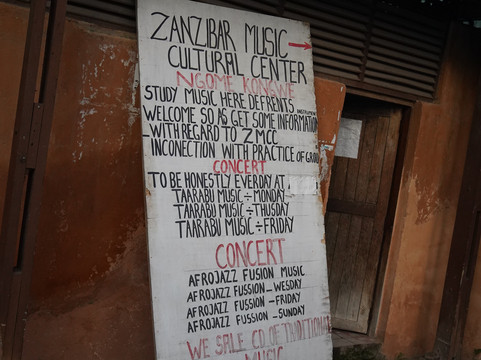 ZANZIBAR MUSIC
CULTURAL CENTER
NGOME KONGWE
STUDY MUSIC HERE DEFRENTS INSTRUMENT
WELCOME SO AS GET SOME INFORMATION
WITH REGARD TO ZMCC
INCONECTION WITH PRACTICE OF GROUP
CONCERT
TO BE HONESTLY EVERDAY AT
TAARABU MUSIC ÷ MONDAY
TAARABU MUSIC ÷ THUSDAY
TAARABU MUSIC ÷ FRIDAY
CONCERT
AFROJAZZ FUSION MUSIC
AFROJAZZ FUSSION _ WESDAY
AFROJAZZ FUSSION - FRIDAY
AFROJAZZ FUSSION _ SUNDAY
WE SALE CD OF TRADITIONAL
MUSIC